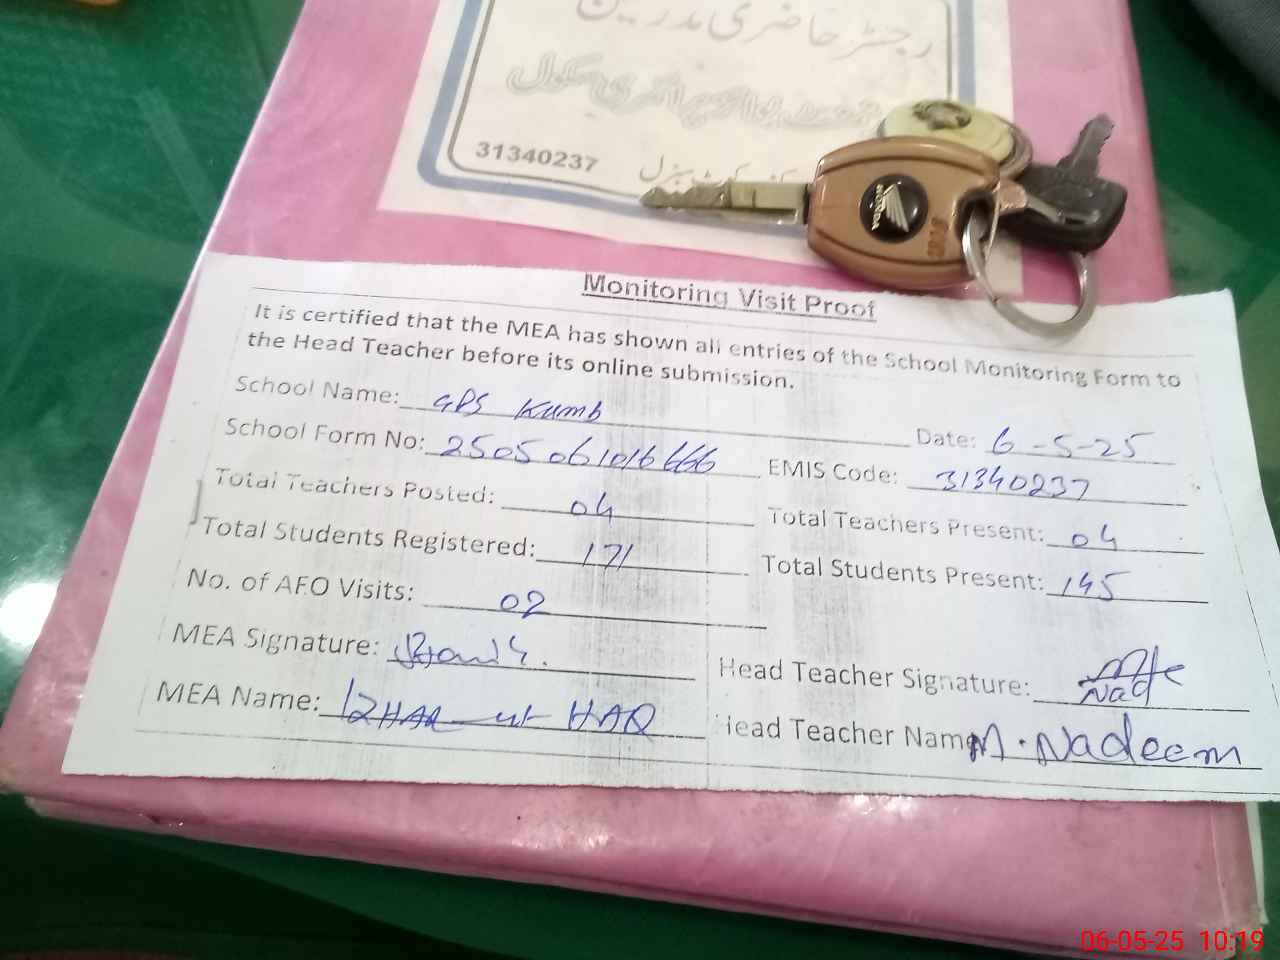 رجسٹر حاضری مدرسین
31340237
HONDA
Monitoring Visit Proof
It is certified that the MEA has shown all entries of the School Monitoring Form to
the Head Teacher before its online submission.
School Name: GPS Kumb
Date: 6-5-25
School Form No: 2505061016666
EMIS Code: 31340237
Total Teachers Posted: 04
Total Teachers Present: 04
Total Students Registered: 171
Total Students Present: 145
No. of AEO Visits: 02
MEA Signature:
Head Teacher Signature:
MEA Name: IZHAR ul HAQ
Head Teacher Name M. Nadeem
06-05-25 10:19